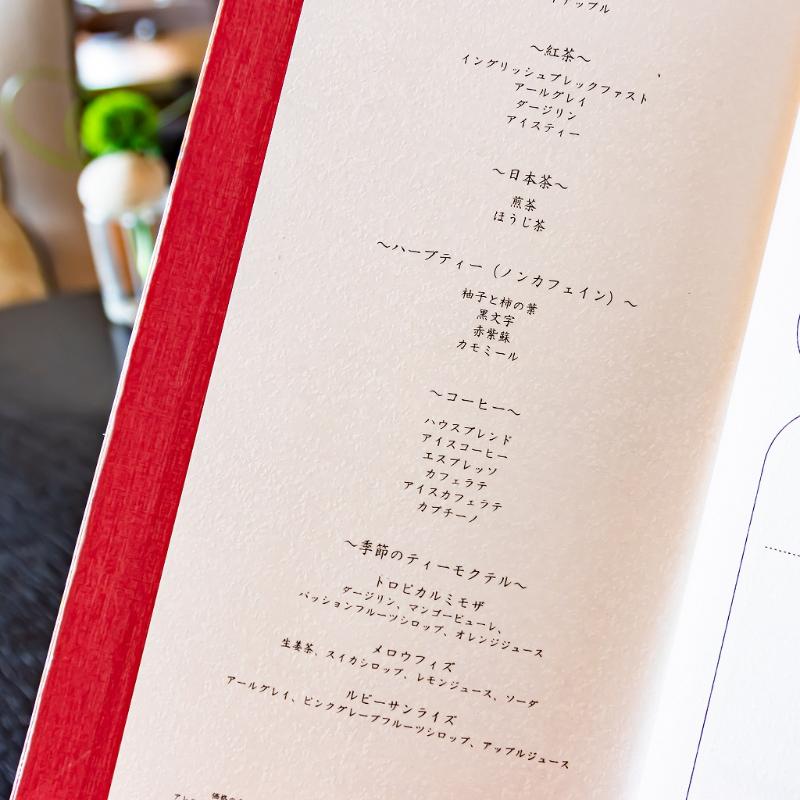 ～紅茶～
イングリッシュブレックファスト
アールグレイ
ダージリン
アイスティー
～日本茶～
煎茶
ほうじ茶
～ハーブティー（ノンカフェイン）～
柚子と柿の葉
黒文字
赤紫蘇
カモミール
～コーヒー～
ハウスブレンド
アイスコーヒー
エスプレッソ
カフェラテ
アイスカフェラテ
カプチーノ
～季節のティーモクテル～
トロピカルミモザ
ダージリン、マンゴーピューレ、
パッションフルーツシロップ、オレンジジュース
メロウフィズ
生姜茶、スイカシロップ、レモンジュース、ソーダ
ルビーサンライズ
アールグレイ、ピンクグレープフルーツシロップ、アップルジュース